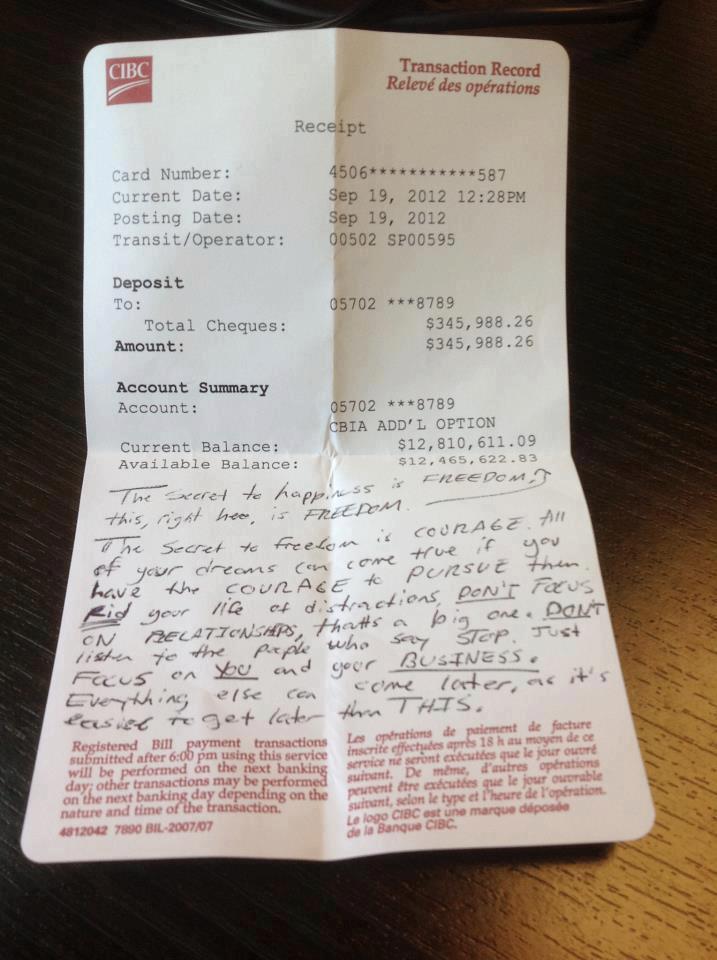 CIBC
Transaction Record
Relevé des opérations
Receipt
Card Number: 4506***********587
Current Date: Sep 19, 2012 12:28PM
Posting Date: Sep 19, 2012
Transit/Operator: 00502 SP00595
Deposit
To: 05702 ***8789
Total Cheques: $345,988.26
Amount: $345,988.26
Account Summary
Account: 05702 ***8789
CBIA ADD'L OPTION
Current Balance: $12,810,611.09
Available Balance: $12,465,622.83
The secret to happiness is FREEDOM,
this, right here, is FREEDOM.
The secret to freedom is COURAGE. All
of your dreams can come true if you
have the COURAGE to PURSUE them.
Rid your life of distractions, DON'T FOCUS
ON RELATIONSHIPS, thatts a big one. DON'T
listen to the people who say STOP. Just
FOCUS on YOU and your BUSINESS.
Everything else can come later, as it's
easier to get later then THIS.
Registered Bill payment transactions
submitted after 6:00 pm using this service
will be performed on the next banking
day; other transactions may be performed
on the next banking day depending on the
nature and time of the transaction.
4812042 7890 BIL-2007/07
Les opérations de paiement de facture
inscrite effectuées après 18 h au moyen de ce
service ne seront exécutées que le jour ouvré
suivant. De même, d'autres opérations
peuvent être exécutées que le jour ouvrable
suivant, selon le type et l'heure de l'opération.
Le logo CIBC est une marque déposée
de la Banque CIBC.